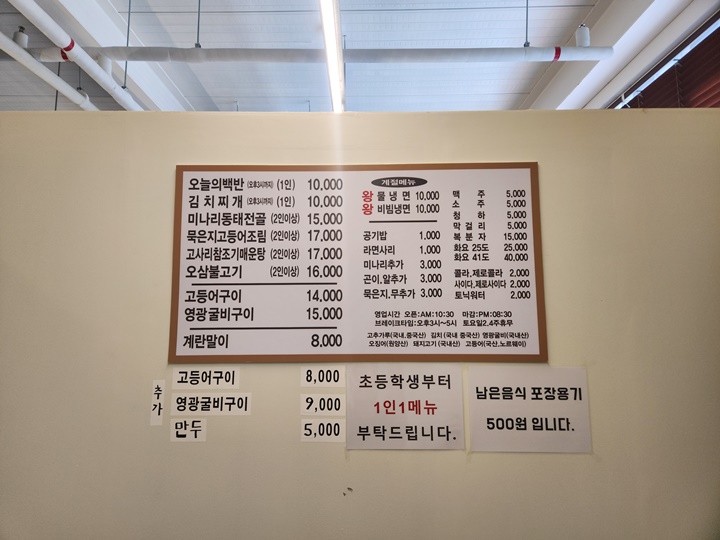 오늘의백반 (오후3시까지) (1인) 10,000
김치찌개 (오후3시까지) (1인) 10,000
미나리동태전골 (2인이상) 15,000
묵은지고등어조림 (2인이상) 17,000
고사리참조기매운탕 (2인이상) 17,000
오삼불고기 (2인이상) 16,000
고등어구이 14,000
영광굴비구이 15,000
계란말이 8,000
계절메뉴
왕 물냉면 10,000
왕 비빔냉면 10,000
공기밥 1,000
라면사리 1,000
미나리추가 3,000
곤이,알추가 3,000
묵은지,무추가 3,000
맥주 5,000
소주 5,000
청하 5,000
막걸리 5,000
복분자 15,000
화요 25도 25,000
화요 41도 40,000
콜라,제로콜라 2,000
사이다,제로사이다 2,000
토닉워터 2,000
영업시간 오픈:AM:10:30 마감:PM:08:30
브레이크타임:오후3시~5시 토요일2.4주휴무
고추가루(국내,중국산) 김치(국내 중국산) 영광굴비(국내산)
오징어(원양산) 돼지고기(국내산) 고등어(국산,노르웨이)
추가
고등어구이 8,000
영광굴비구이 9,000
만두 5,000
초등학생부터
1인1메뉴
부탁드립니다.
남은음식 포장용기
500원 입니다.